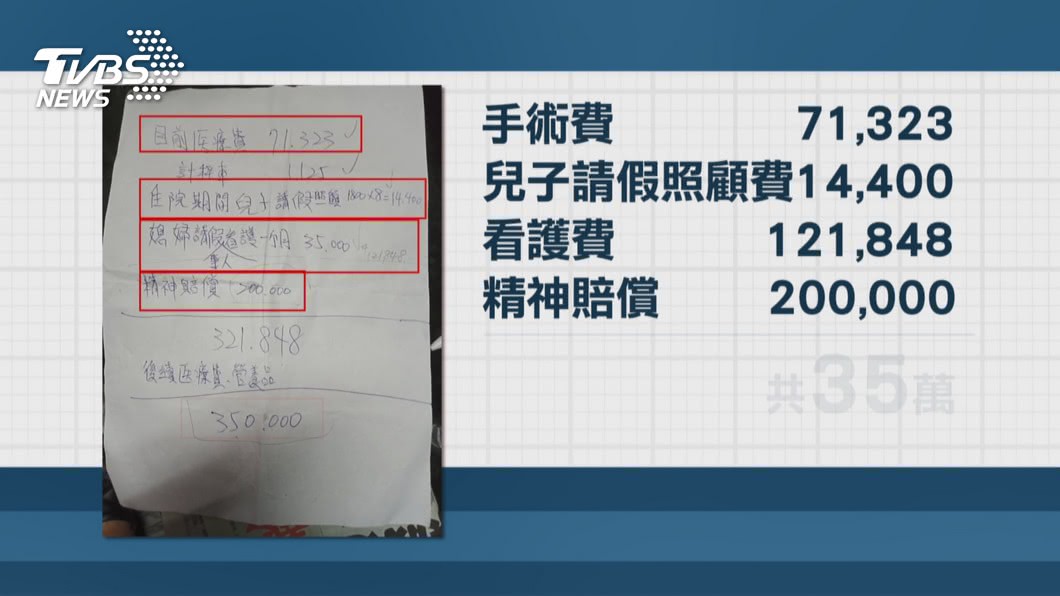 TVBS
NEWS
目前医療費 71.323
計程車 1125
住院期間兒子請假照顧 1800×8=14.400
媳婦請假看護一個月 35.000
專人
121848
精神賠償 200.000
321.848
後續医療費、營養品
350.000
手術費 71,323
兒子請假照顧費14,400
看護費 121,848
精神賠償 200,000
共35萬